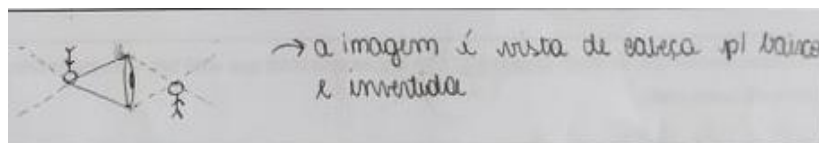 → a imagem é vista de cabeça p/ baixo
e invertida